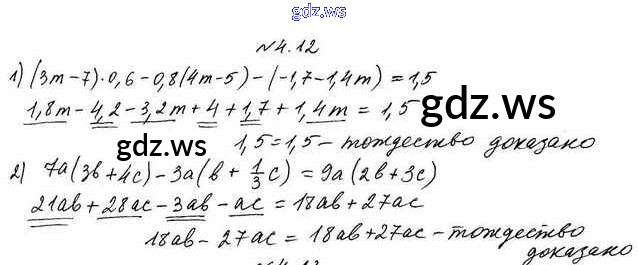 gdz.ws
№4.12
1) (3m-7)·0,6-0,8(4m-5)-(-1,7-1,4m)=1,5
1,8m-4,2-3,2m+4+1,7+1,4m=1,5
gdz.ws
1,5=1,5-тождество доказано
gdz.ws
2) 7a(3b+4c)-3a(b+1/3c)=9a(2b+3c)
21ab+28ac-3ab-ac=18ab+27ac
18ab-27ac=18ab+27ac-тождество
доказано
№4.13